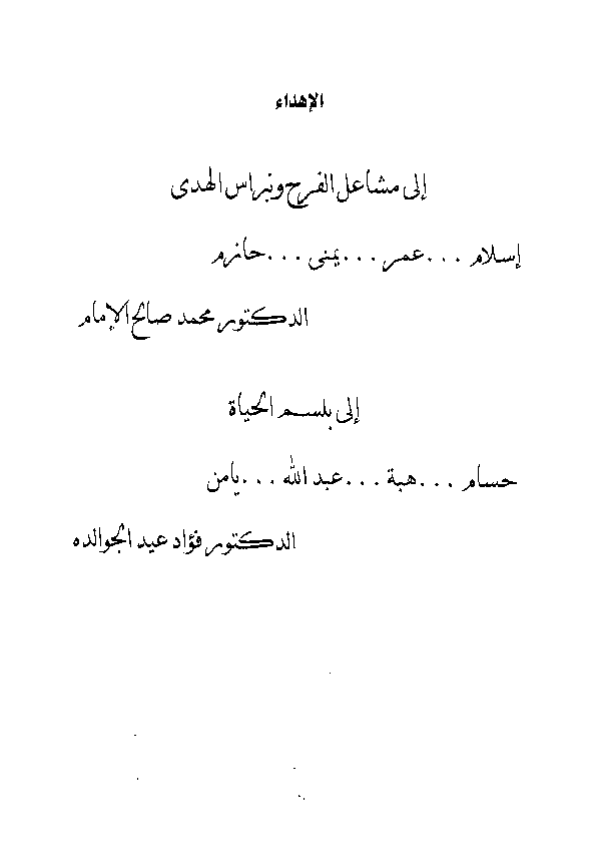 الإهداء
إلى مشاعل الفرح ونبراس الهدى
إسلام ...عمر ...يمنى ...حازم
الدكتور محمد صالح الإمام
إلى بلسم الحياة
حسام ...هبة ...عبد الله ...يامن
الدكتور فؤاد عيد الجوالده